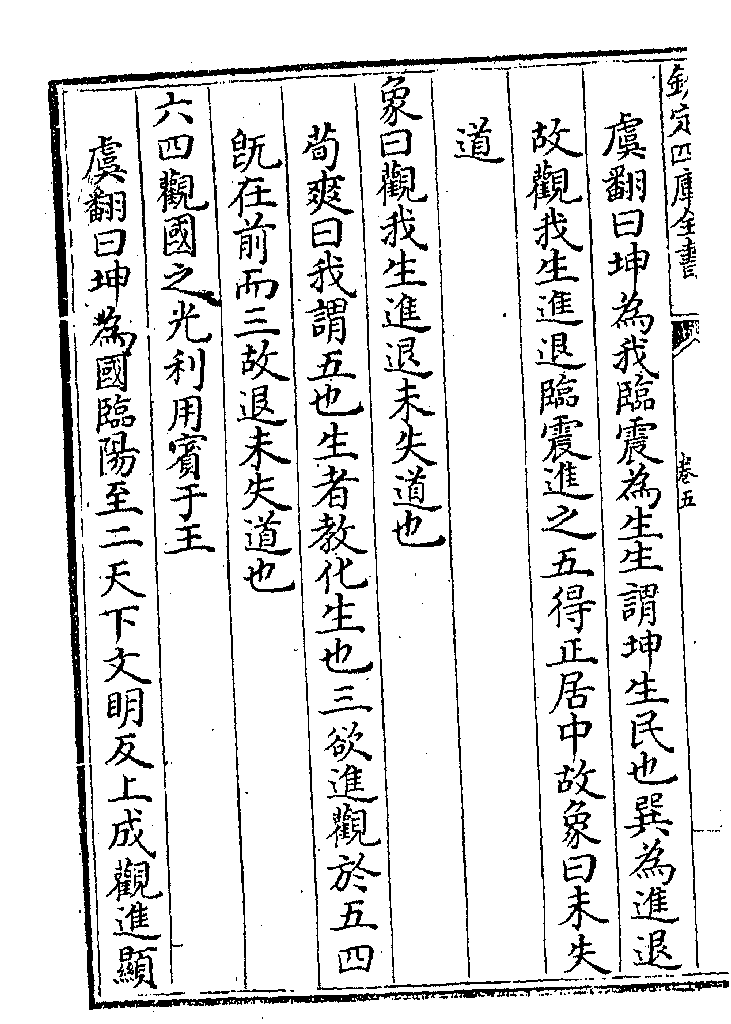 欽定四庫全書
卷五
虞翻曰坤為我臨震為生生謂坤生民也巽為進退
故觀我生進退臨震進之五得正居中故象曰未失
道
象曰觀我生進退未失道也
荀爽曰我謂五也生者教化生也三欲進觀於五四
旣在前而三故退未失道也
六四觀國之光利用賓于王
虞翻曰坤為國臨陽至二天下文明反上成觀進顯